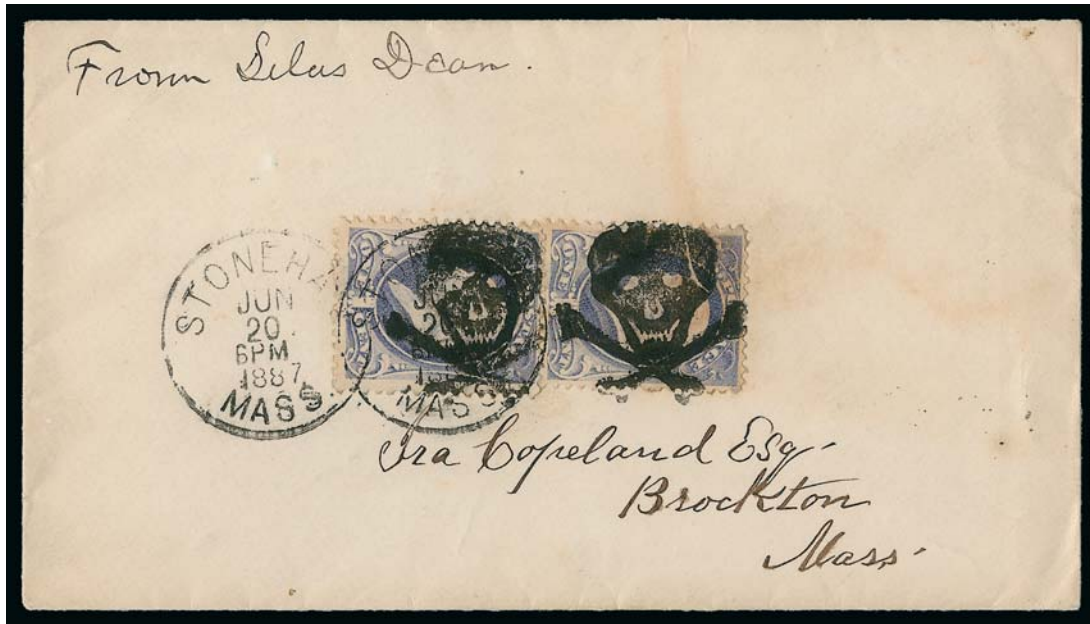 From Silas Dean.
STONEHA
JUN
20
6PM
1887
MASS
STON
20
MASS
Ira Copeland Esq.
Brockton
Mass.